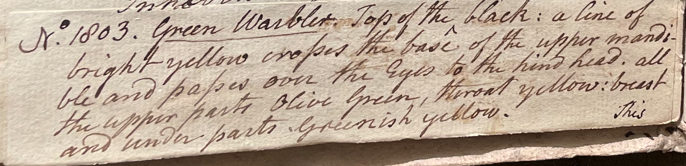 No. 1803. Green Warbler. Top of the black: a line of
bright yellow crosses the base of the upper mandi-
ble and passes over the Eyes to the hind head. all
the upper parts Olive Green, throat yellow: breast
and under parts Greenish yellow.
This